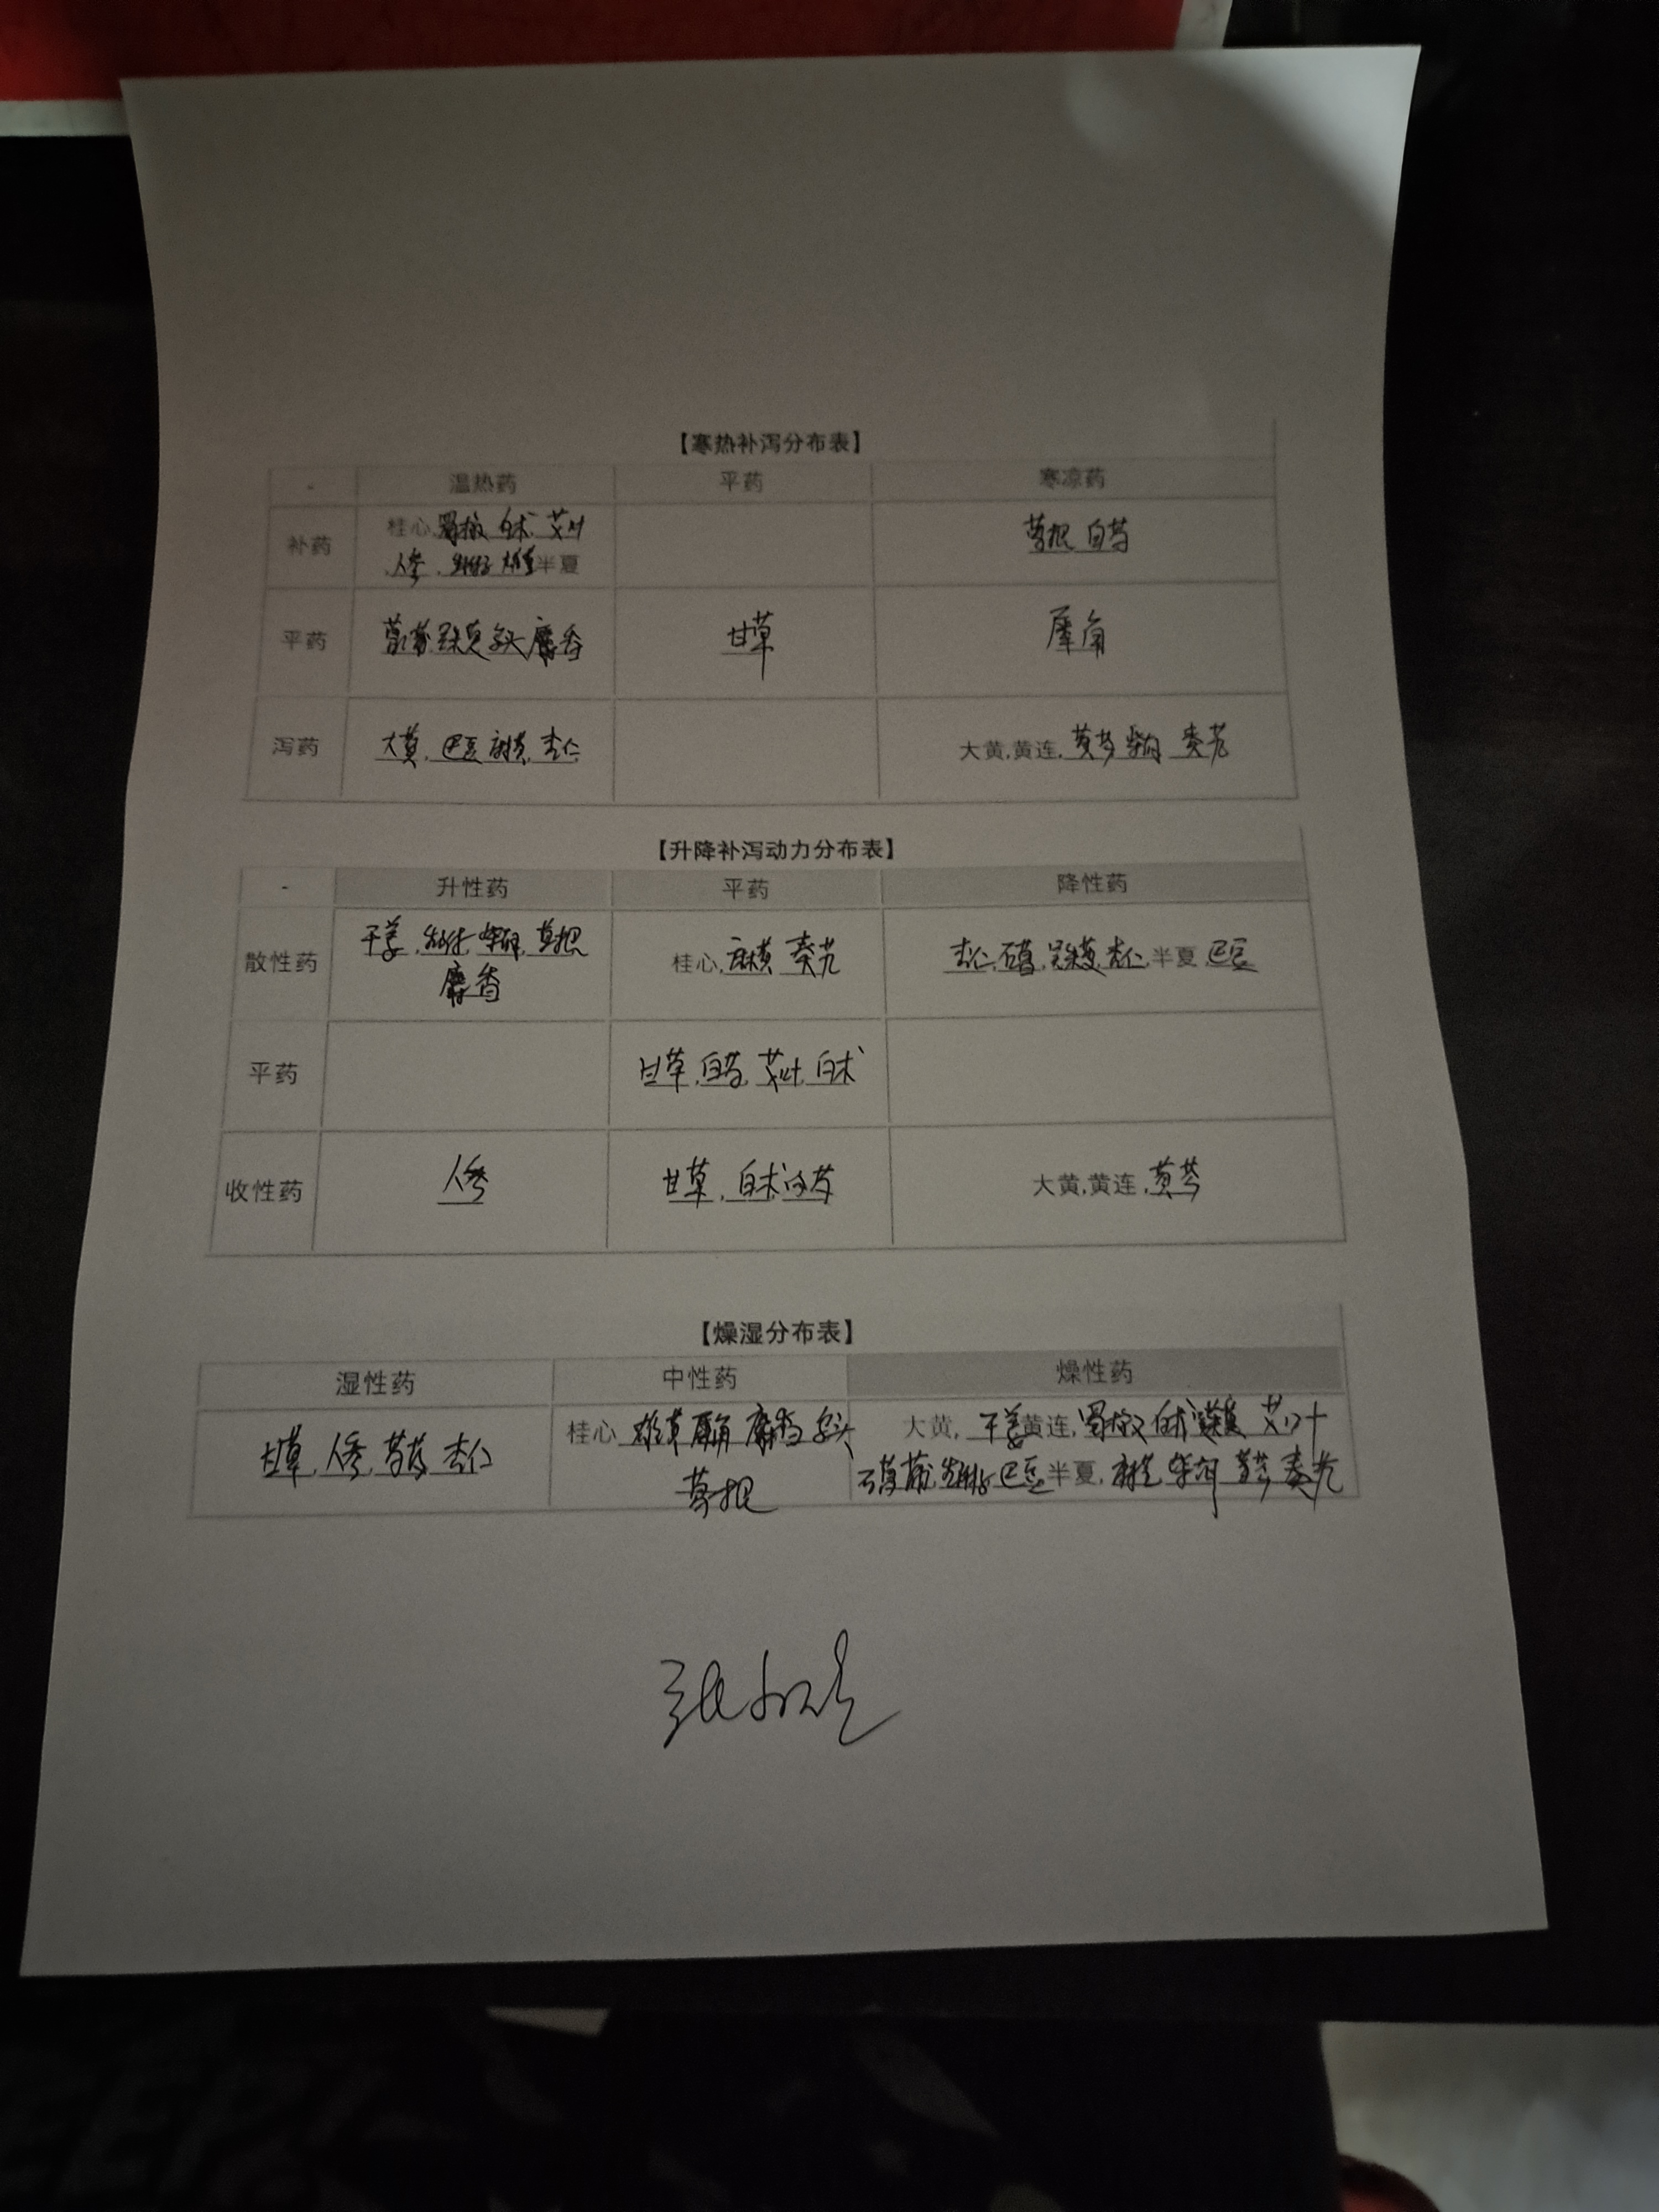 【寒热补泻分布表】
- 温热药 平药 寒凉药
补药 桂心,蜀椒 白术 艾叶 葛根 白芍
人参, 半夏
平药 麝香 甘草 犀角
泻药 大黄, 巴豆 麻黄, 杏仁 大黄,黄连, 黄芩 柴胡 秦艽
【升降补泻动力分布表】
- 升性药 平药 降性药
散性药 干姜, 柴胡, 葛根 桂心,麻黄 秦艽 杏仁, 石膏, 吴茱萸, 杏仁, 半夏 巴豆
麝香
平药 甘草,白芍, 艾叶, 白术
收性药 人参 甘草, 白术 白芍 大黄,黄连,黄芩
【燥湿分布表】
湿性药 中性药 燥性药
甘草, 人参, 杏仁 桂心, 犀角 麝香 大黄, 干姜 黄连, 蜀椒 白术 艾叶
葛根 巴豆 半夏, 柴胡 黄芩 秦艽